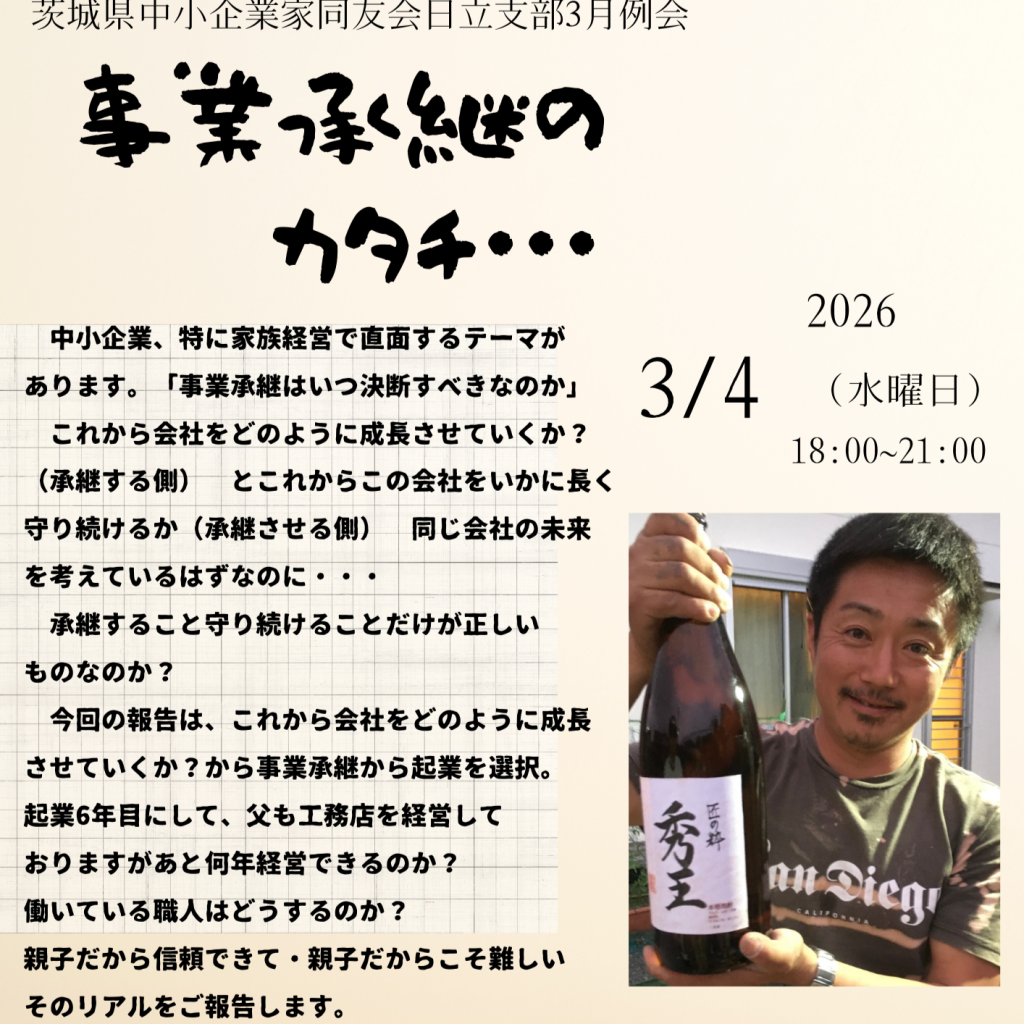 茨城県中小企業家同友会日立支部3月例会
事業承継の
カタチ・・・
2026
3/4 （水曜日）
18:00~21:00
中小企業、特に家族経営で直面するテーマが
あります。「事業承継はいつ決断すべきなのか」
これから会社をどのように成長させていくか？
（承継する側）　とこれからこの会社をいかに長く
守り続けるか（承継させる側）　同じ会社の未来
を考えているはずなのに・・・
承継すること守り続けることだけが正しい
ものなのか？
今回の報告は、これから会社をどのように成長
させていくか？から事業承継から起業を選択。
起業6年目にして、父も工務店を経営して
おりますがあと何年経営できるのか？
働いている職人はどうするのか？
親子だから信頼できて・親子だからこそ難しい
そのリアルをご報告します。
匠の粋
秀王
San Diego
CALIFORNIA